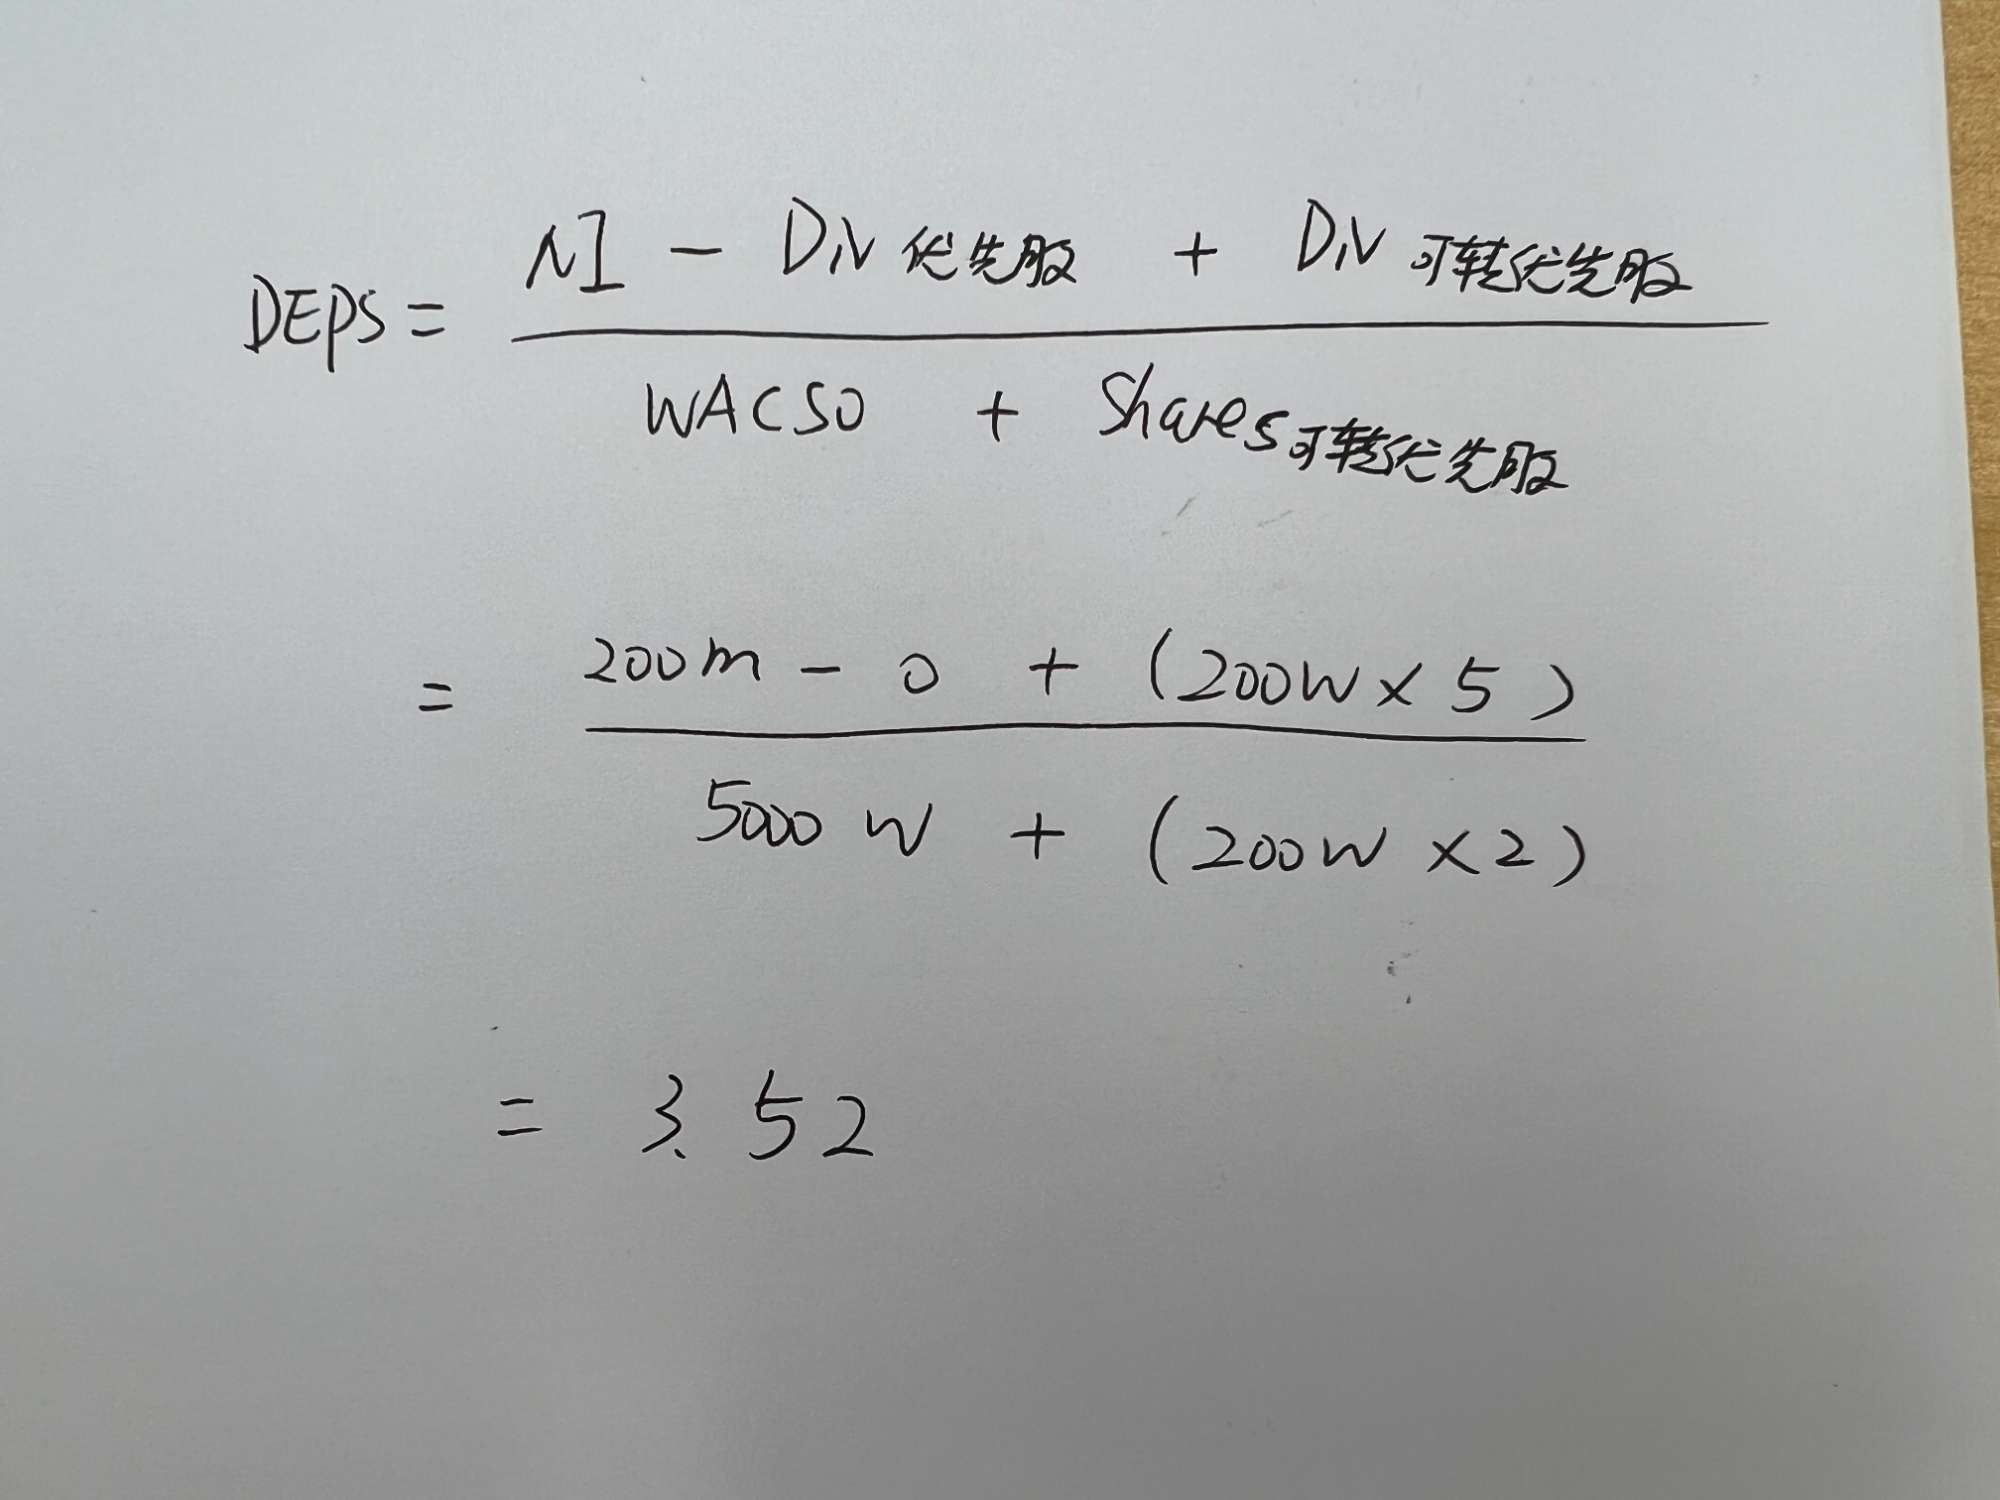 DEPS = NI - Div 优先股 + Div 可转优先股
WACSO + Shares 可转优先股
= 200m - 0 + (200W × 5)
5000W + (200W × 2)
= 3.52